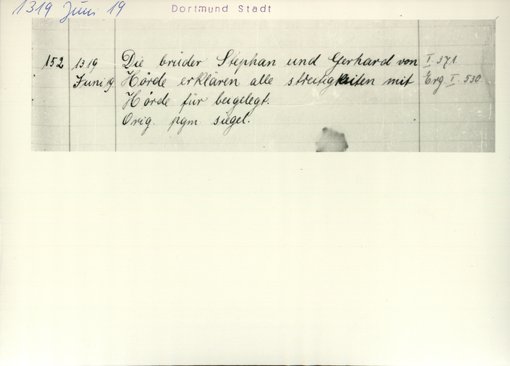 1319 Juni 19
Dortmund Stadt
152 1319 Die brüder Stephan und Gerhard von I 371
Juni 19 Hörde erklären alle streitigkeiten mit Erg. I 530
Hörde für beigelegt.
Orig. pgm. siegel.